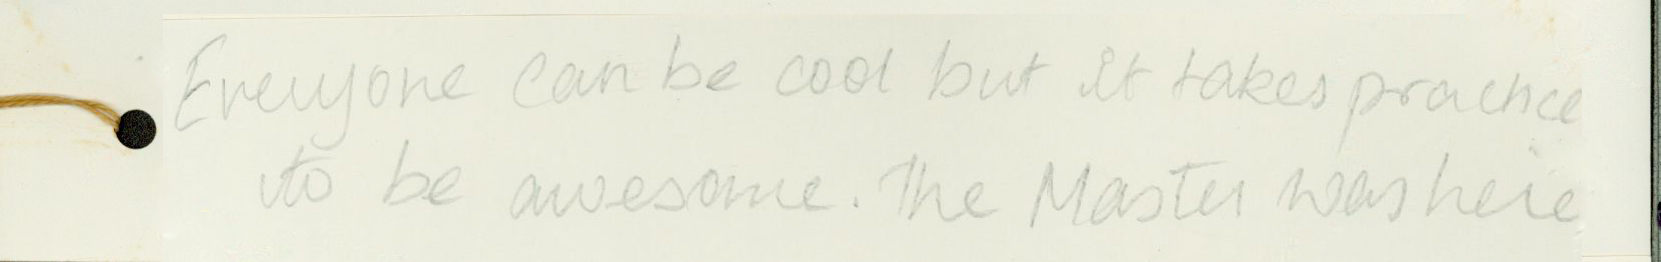 Everyone can be cool but it takes practice
to be awesome. The Master was here